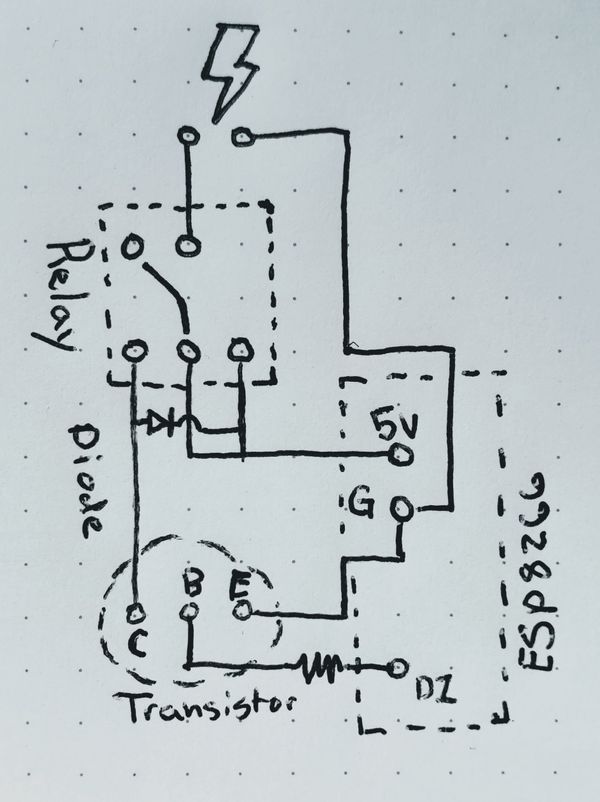 Relay
5V
Diode
G
ESP8266
B
E
C
D1
Transistor